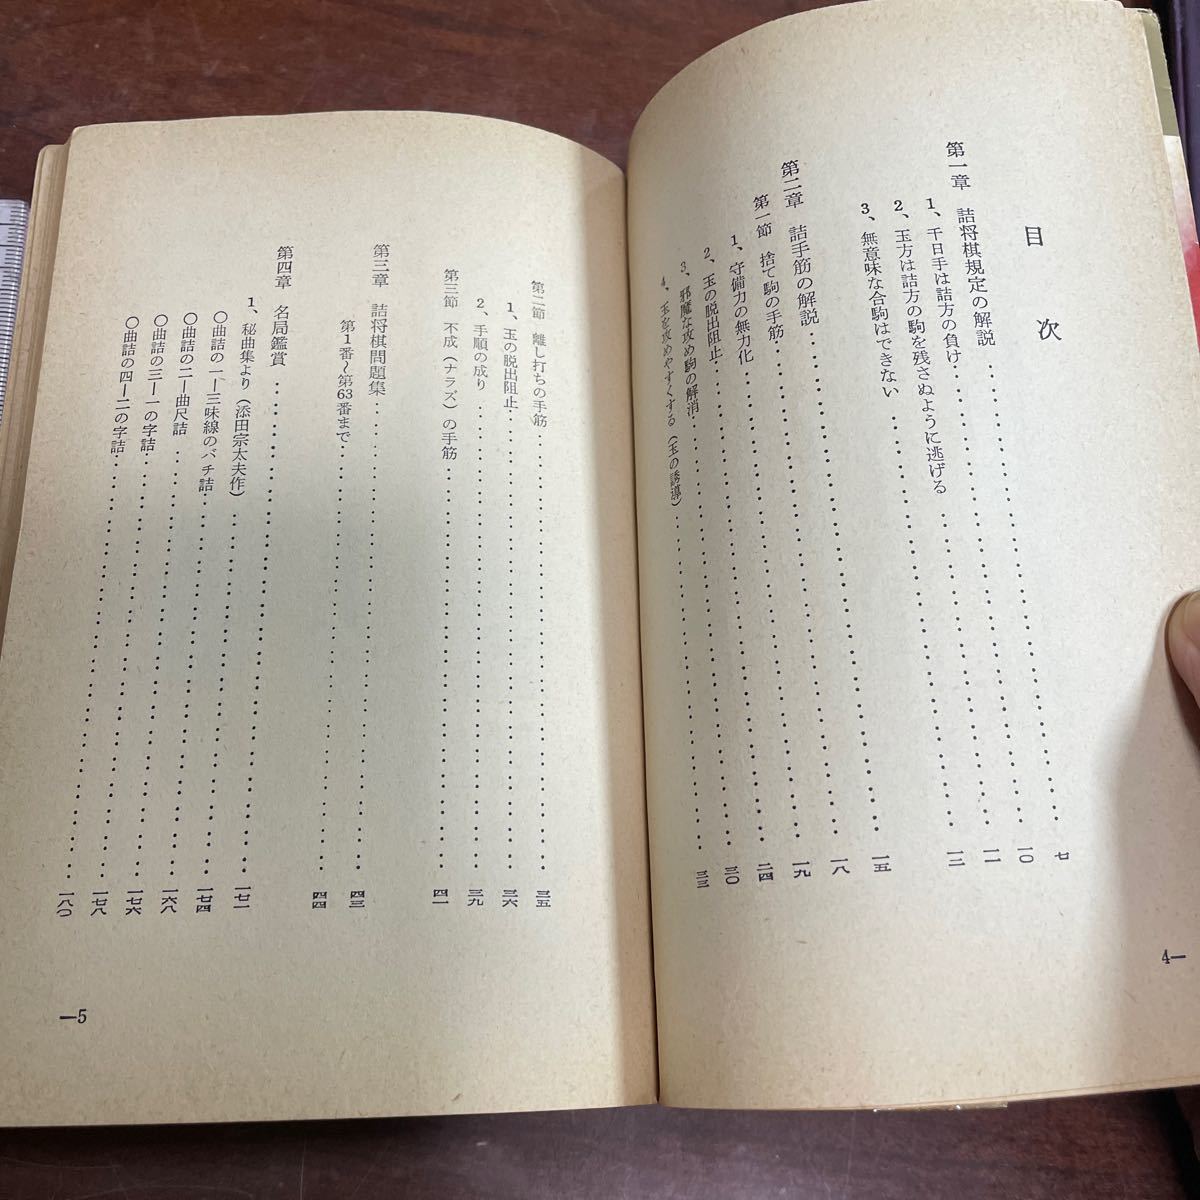 目次
第一章 詰将棋規定の解説…………七
1、千日手は詰方の負け…………一〇
2、玉方は詰方の駒を残さぬように逃げる…………一一
3、無意味な合駒はできない…………一二
第二章 詰手筋の解説…………一五
第一節 捨て駒の手筋…………一八
1、守備力の無力化…………一九
2、玉の脱出阻止…………二四
3、邪魔な攻め駒の解消…………三〇
4、玉を攻めやすくする（玉の誘導）…………三三
4—
第二節 離し打ちの手筋…………三五
1、玉の脱出阻止…………三六
2、手順の成り…………三九
第三節 不成（ナラズ）の手筋…………四一
第三章 詰将棋問題集…………四三
第1番〜第63番まで…………四四
第四章 名局鑑賞…………一七一
1、秘曲集より（添田宗太夫作）…………一七四
〇曲詰の一—三味線のバチ詰…………一六八
〇曲詰の二—曲尺詰…………一七六
〇曲詰の三—一の字詰…………一七八
〇曲詰の四—二の字詰…………一八〇
—5